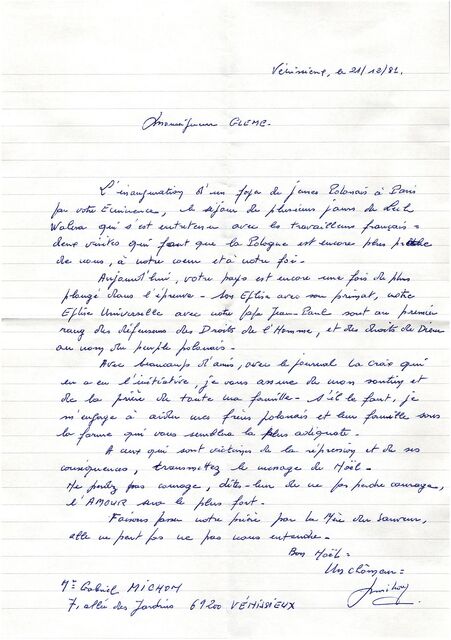 Vénissieux, le 21/12/81.
Monseigneur GLEMP.
L'inauguration d'un foyer de jeunes Polonais à Paris
par votre Eminence, le séjour de plusieurs jours de Lech
Walesa qui s'est entretenu avec les travailleurs français =
deux visites qui font que la Pologne est encore plus proche
de nous, à notre cœur et à notre foi -
Aujourd'hui, votre pays est encore une fois de plus
plongé dans l'épreuve - Son Eglise avec son primat, notre
Eglise Universelle avec notre Pape Jean-Paul sont au premier
rang des défenseurs des Droits de l'Homme, et des droits de Dieu
au nom du peuple polonais -
Avec beaucoup d'amis, avec le journal La Croix qui
en a eu l'initiative, je vous assure de mon soutien et
de la prière de toute ma famille - S'il le faut, je
m'engage à aider mes frères polonais et leur famille sous
la forme qui vous semblera la plus adéquate -
A ceux qui sont victimes de la répression et de ses
conséquences, transmettez le message de Noël -
Ne perdez pas courage, dites-leur de ne pas perdre courage,
l'AMOUR sera le plus fort -
Faisons passer notre prière par la Mère du Sauveur,
elle ne peut pas ne pas nous entendre -
Bon Noël =
Un chômeur =
Mr Gabriel MICHON
7, allée des Jardins 69200 VÉNISSIEUX